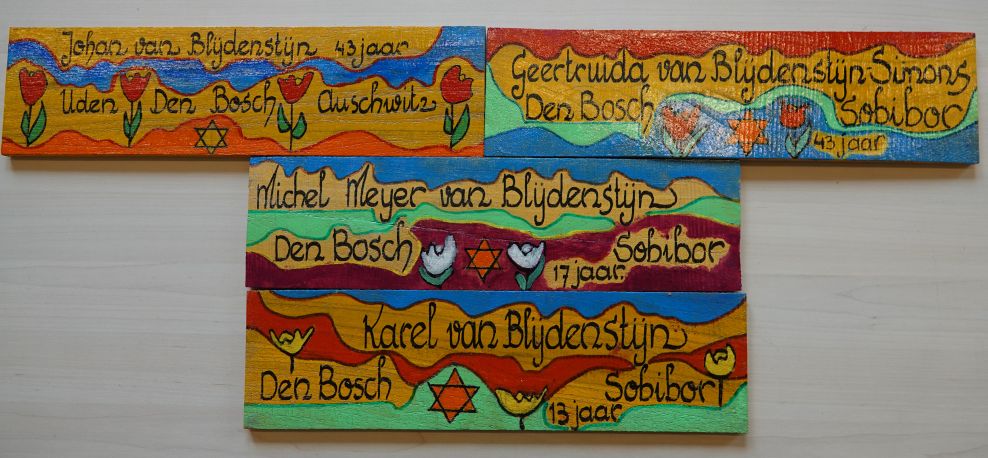 Johan van Blijdenstijn 43 jaar
Uden Den Bosch Auschwitz
Geertruida van Blijdenstijn-Simons
Den Bosch Sobibor
43 jaar
Michel Meyer van Blijdenstijn
Den Bosch Sobibor
17 jaar
Karel van Blijdenstijn
Den Bosch Sobibor
13 jaar